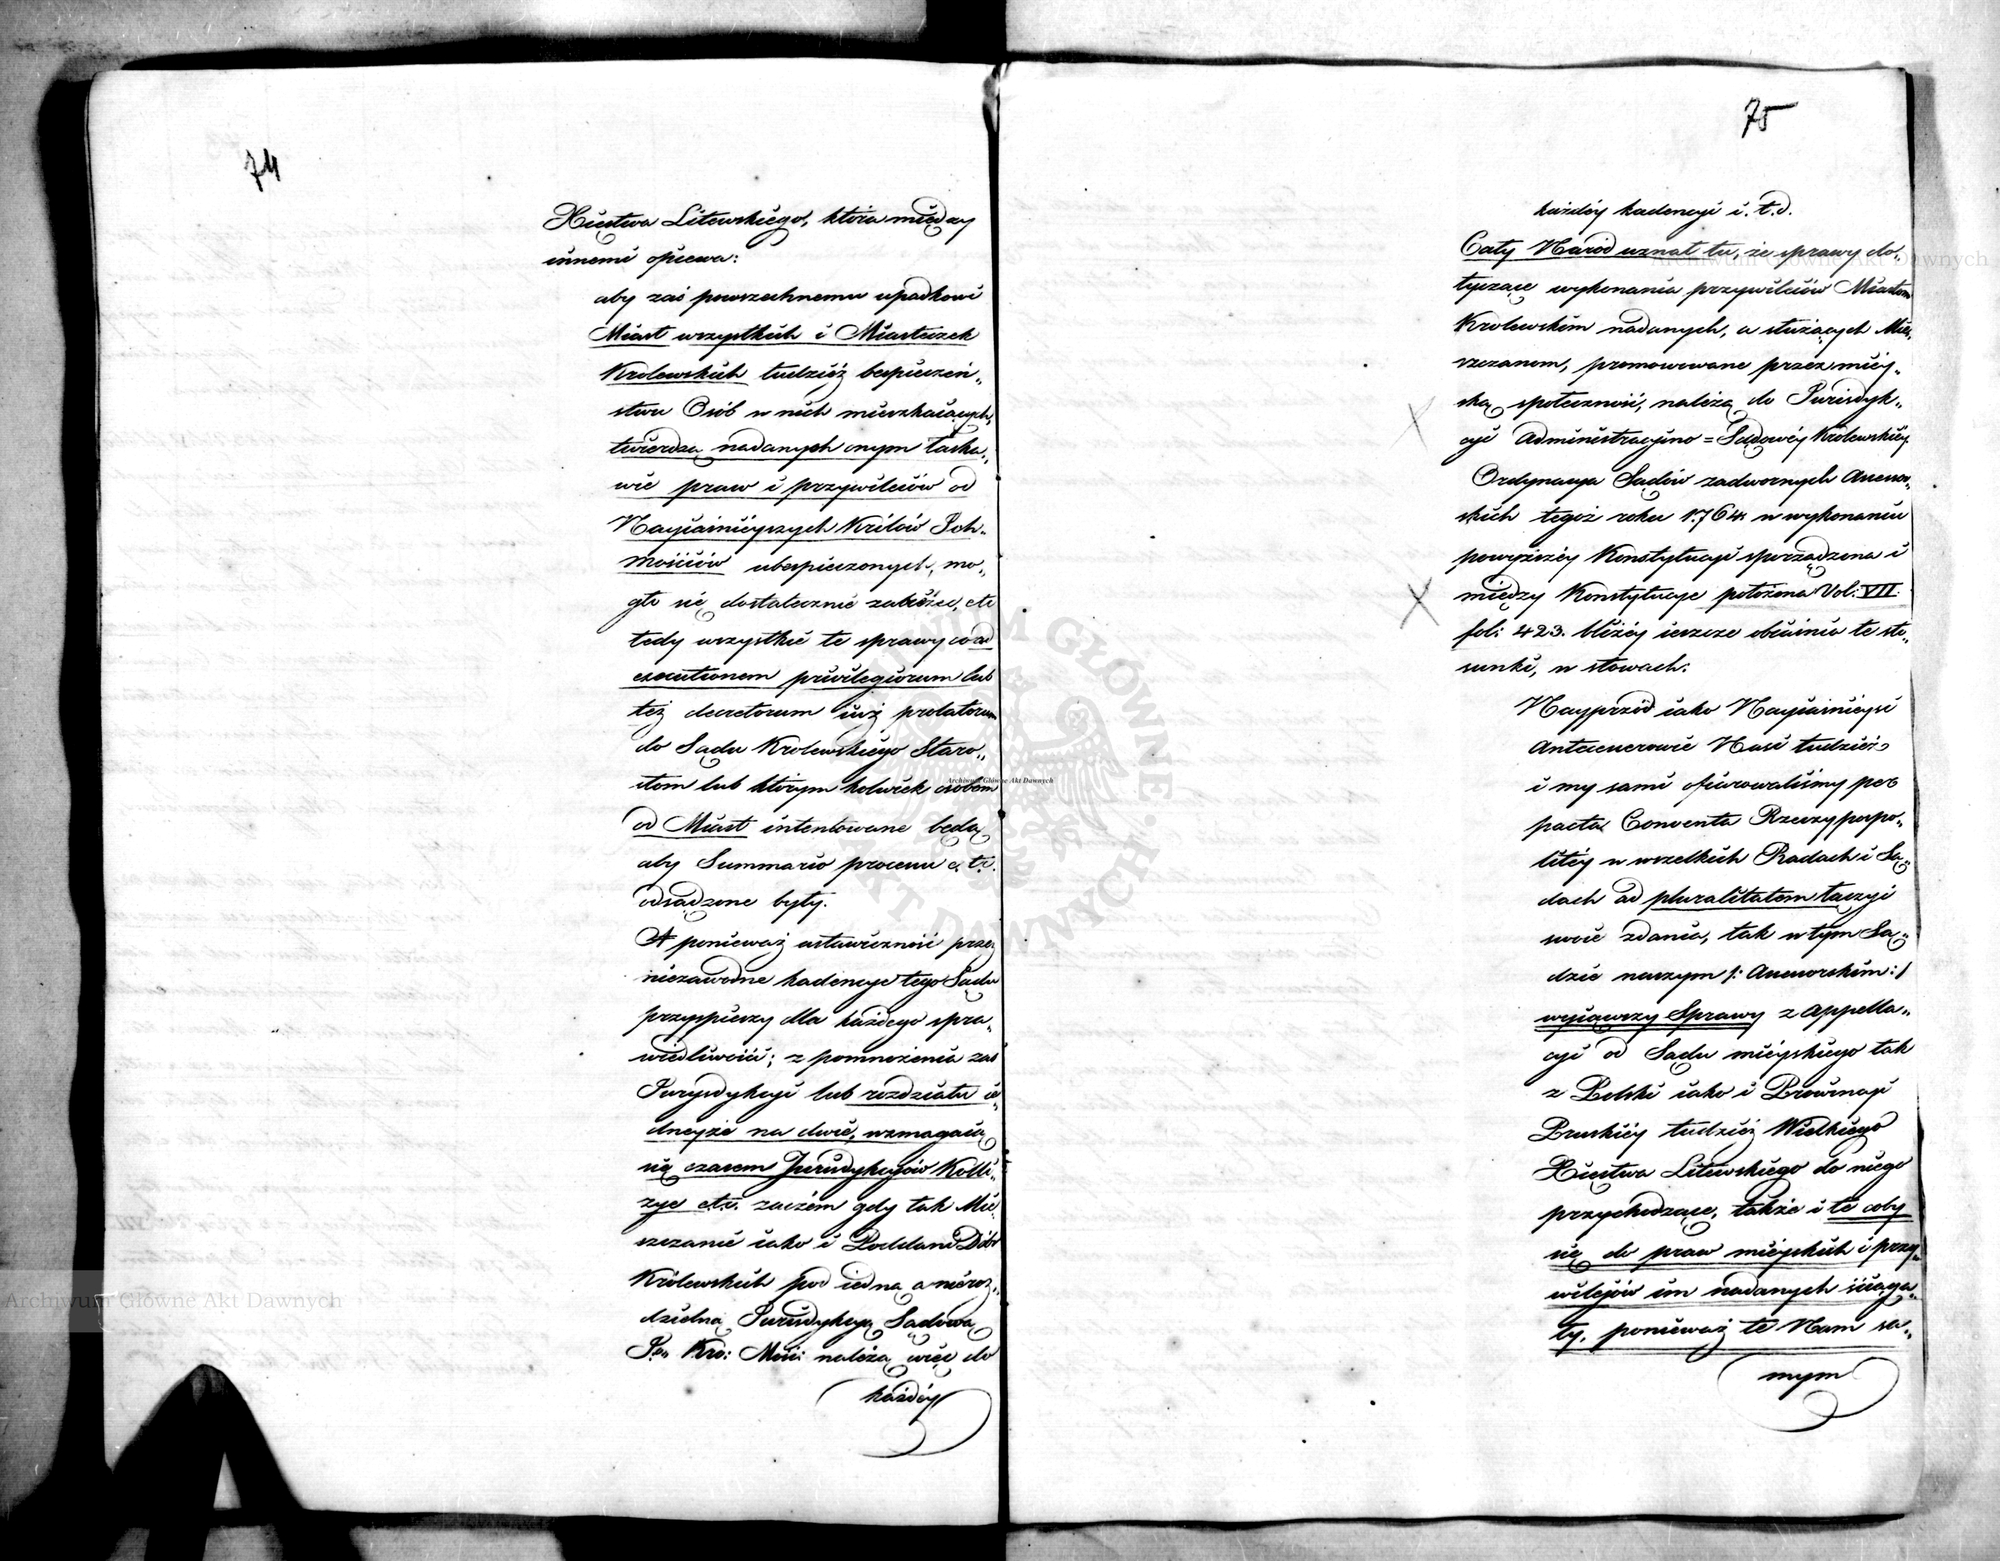 74
Xięstwa Litewskiego, która między
innemi opiewa:
aby zaś powszechnemu upadkowi
Miast wszystkich i Miasteczek
Krolewskich tudzież bespieczeń„
stwu Osób w nich mieszkaiących,
twierdzą nadanych onym łaska„
wie praw i przywileiów od
Nayiaśnieyszych Królów Ich„
mościów ubespieczonych, mo„
gło się dostatecznie zabieżec, etc
tedy wszystkie te sprawy co ad
executionem privilegiorum lub
też decretorum iuż prolatorum
do Sądu Krolewskiego Staro„
stom lub którym kolwiek osobom
od Miast intentowane będą
aby Summario processu e. t.c.
odsądzone były.
A ponieważ ustawiczność przez
niezawodne kadencye tego Sądu
przyspieszy dla każdego spra„
wiedliwość; z pomnożenia zaś
Jurysdykcyi lub rozdziału ie„
dneyże na dwie, wzmagaią
się czasem Jurisdykcyów Kolli„
zye etc. zaczém gdy tak Mie„
szczanie iako i Poddani Dóbr
Królewskich pod iedną a nieroz„
dzielną Jurisdykcyą Sądową
J„ Kró: Mści: należą więc do
każdéy
75
każdéy kadencyi i. t. d.
Cały Naród uznał tu, że sprawy do„
tyczące wykonania przywileiów Miastom
Krolewskim nadanych, a służących Mie„
szczanom, promowowane przez miey„
ską społeczność, należą do Jurisdyk„
cyi Administracyino=Sądowéy Królewskiéy
Ordynacya Sądów zadwornych Assessor„
skich tegoż roku 1764 w wykonaniu
powyższéy Konstytucyi sporządzona i
między Konstytucye położona Vol: VII.
fol: 423. bliżéy ieszcze obiaśnia te sto„
sunki, w słowach:
Nayprzód iako Nayiaśnieysi
Antecessorowie Nasi tudzież
i my sami ofiarowaliśmy per
pacta Conventa Rzeczypospo„
litéy w wszelkich Radach i Są„
dach ad pluralitatem łaczyi
swoie zdania, tak w tym Są„
dzie naszym /: Assessorskim :/
wyiąwszy Sprawy z Appella„
cyi od Sądu mieyskiego tak
z Polski iako i Prowincyi
Pruskiéy tudzież Wielkiego
Xięstwa Litewskiego do niego
przychodzące, także i te coby
się do praw mieyskich i przy„
wilejów im nadanych ściąga„
ły, ponieważ te Nam sa„
mym
Archiwum Główne Akt Dawnych
Archiwum Główne Akt Dawnych
Archiwum Główne Akt Dawnych
ARCHIWUM GŁÓWNE AKT DAWNYCH